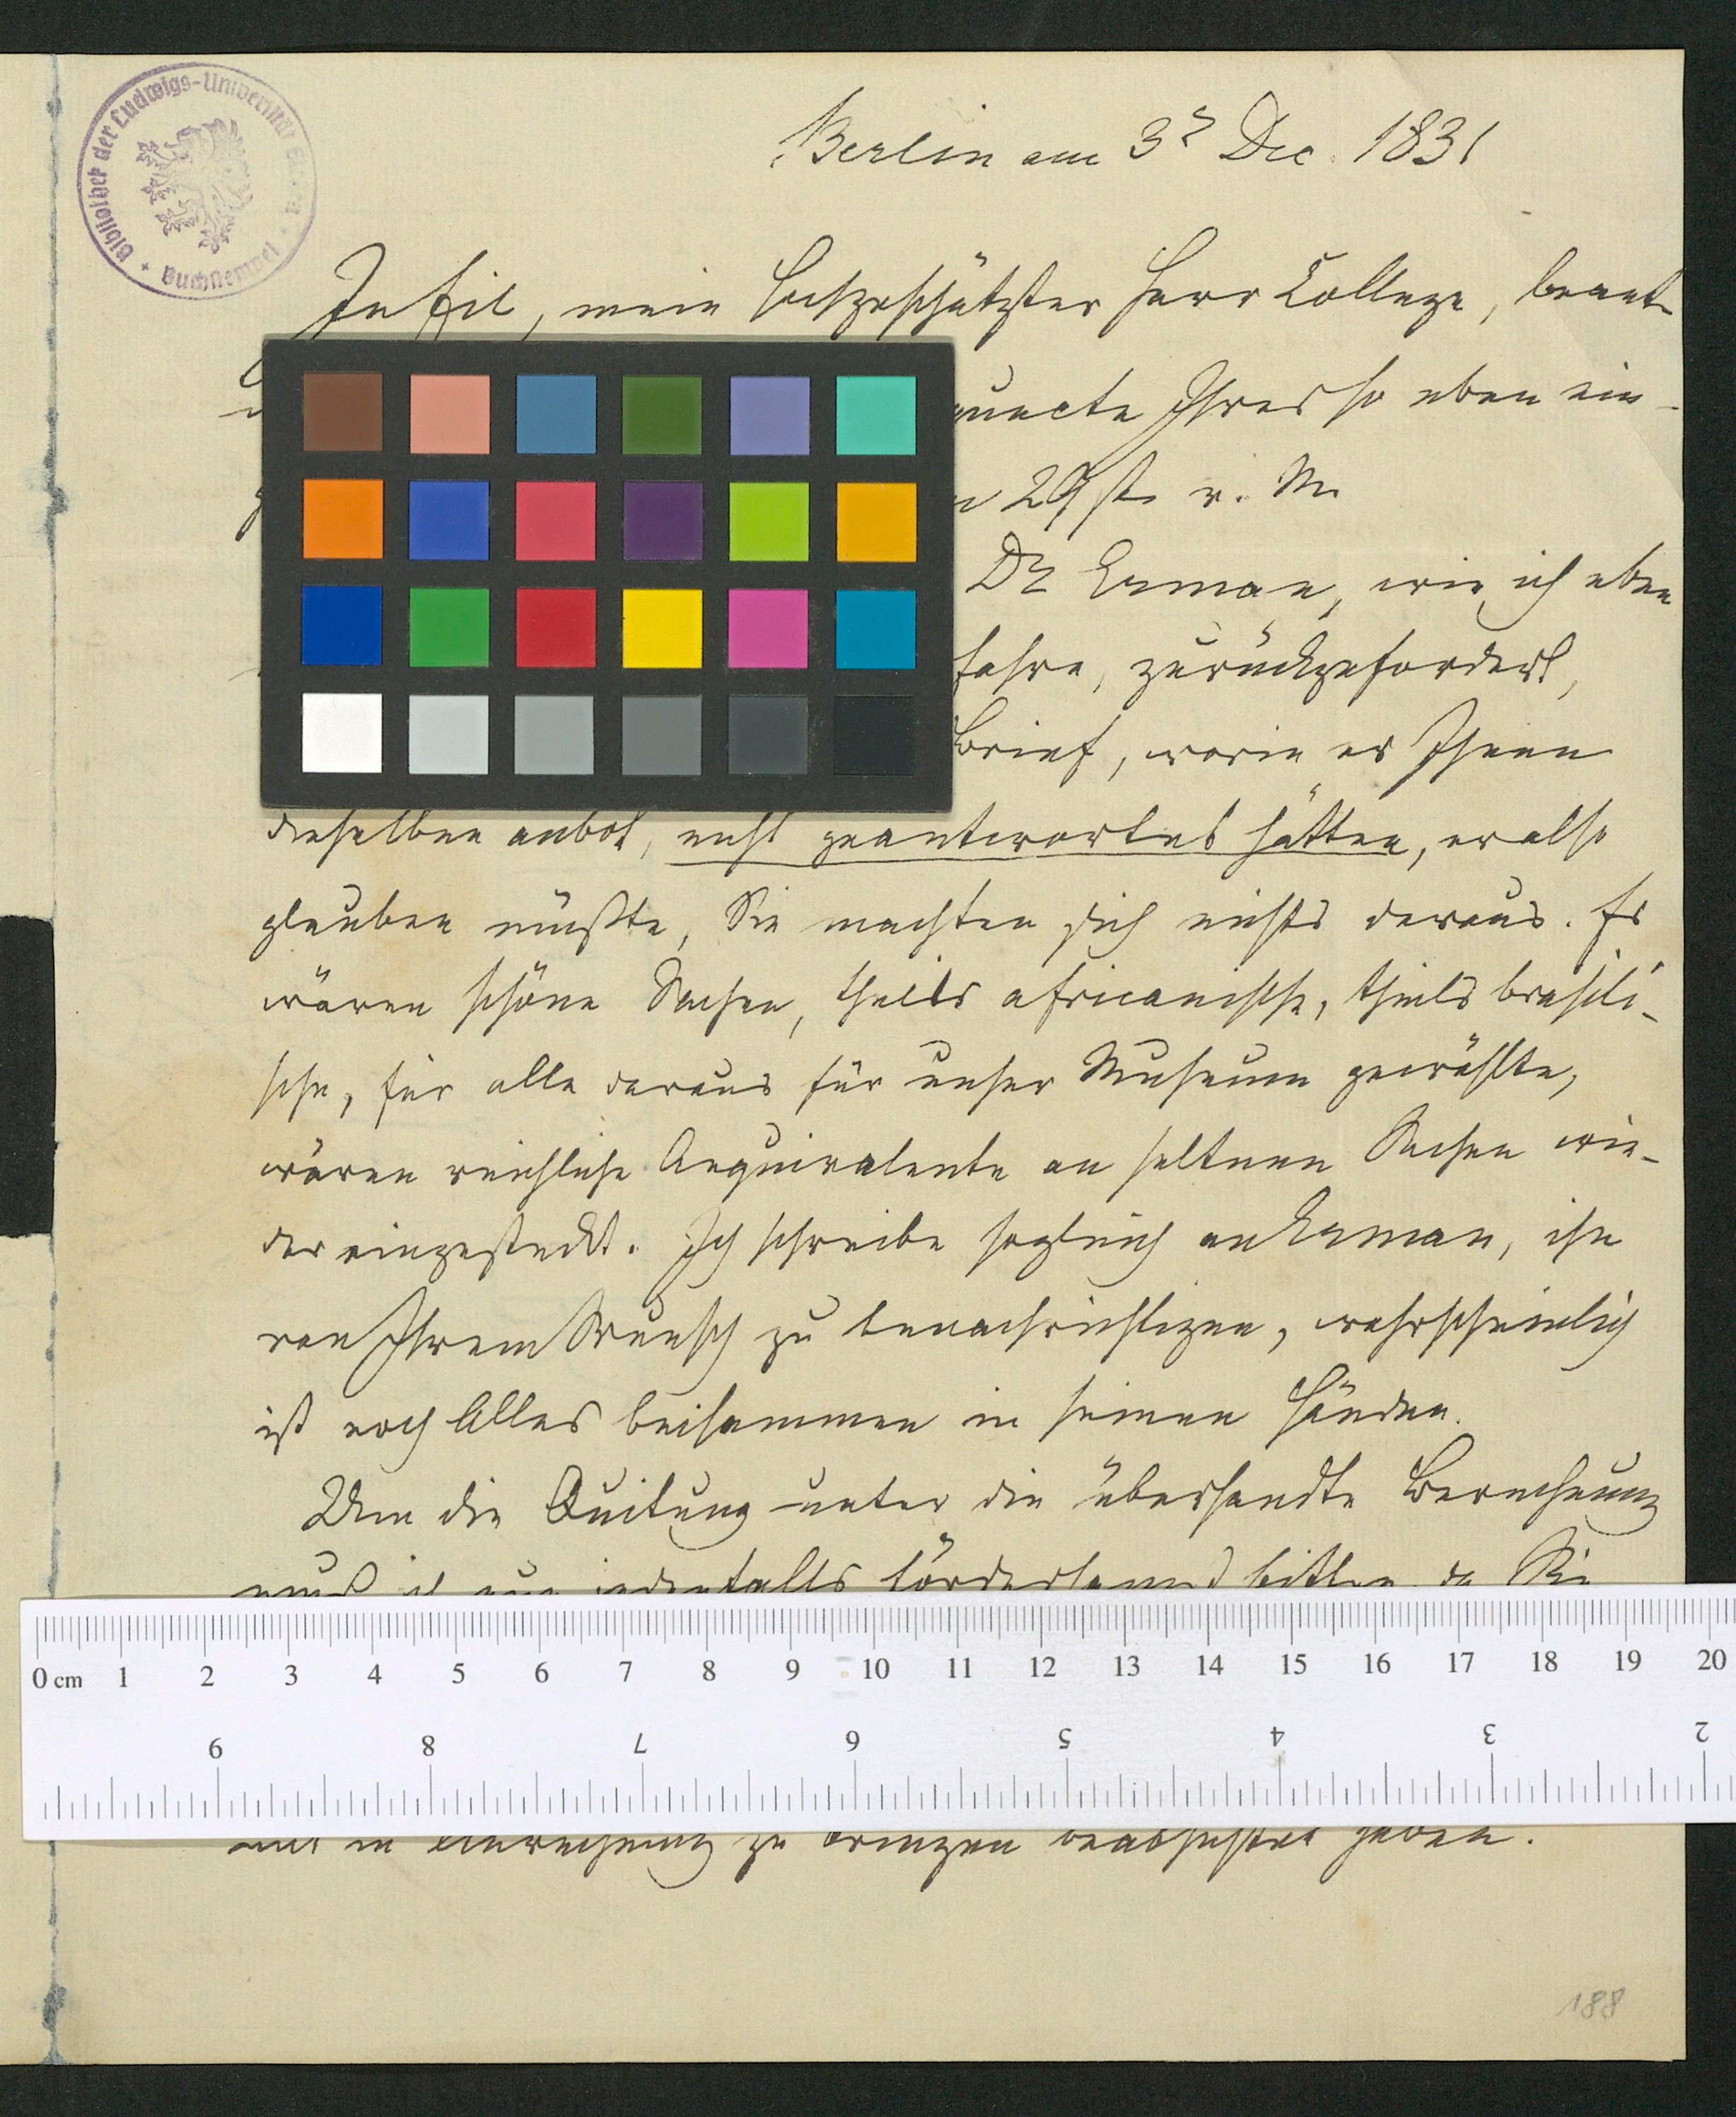 Bibliothek der Ludwigs-Universität
Buchstempel
Berlin am 3ᵗ Dec. 1831
In Eil, mein hochgeschätzter Herr College, beant-
puncte Ihres so eben ein-
29st. v. M.
Dr Erman, wie ich eben
fahre, zurückgefordert,
Brief, worin er Ihnen
dieselben anbot, nicht geantwortet hätten, er also
glauben müßte, Sie machten sich nichts daraus. Es
wären schöne Sachen, theils africanische, theils brasili-
sche, für alle daraus für unser Museum gewählte,
wären reichliche Aequivalente an seltnen Sachen wie-
der eingesteckt. Ich schreibe sogleich an Erman, ihn
von Ihrem Wunsch zu benachrichtigen, wahrscheinlich
ist noch Alles beisammen in seinen Händen.
Um die Quitung unter die übersandte Berechnung
muß ich nun jedenfalls bitten, da Sie
0 cm 1 2 3 4 5 6 7 8 9 10 11 12 13 14 15 16 17 18 19 20
9 8 7 6 5 4 3 2
in Anrechnung zu bringen beabsichtet haben.
188